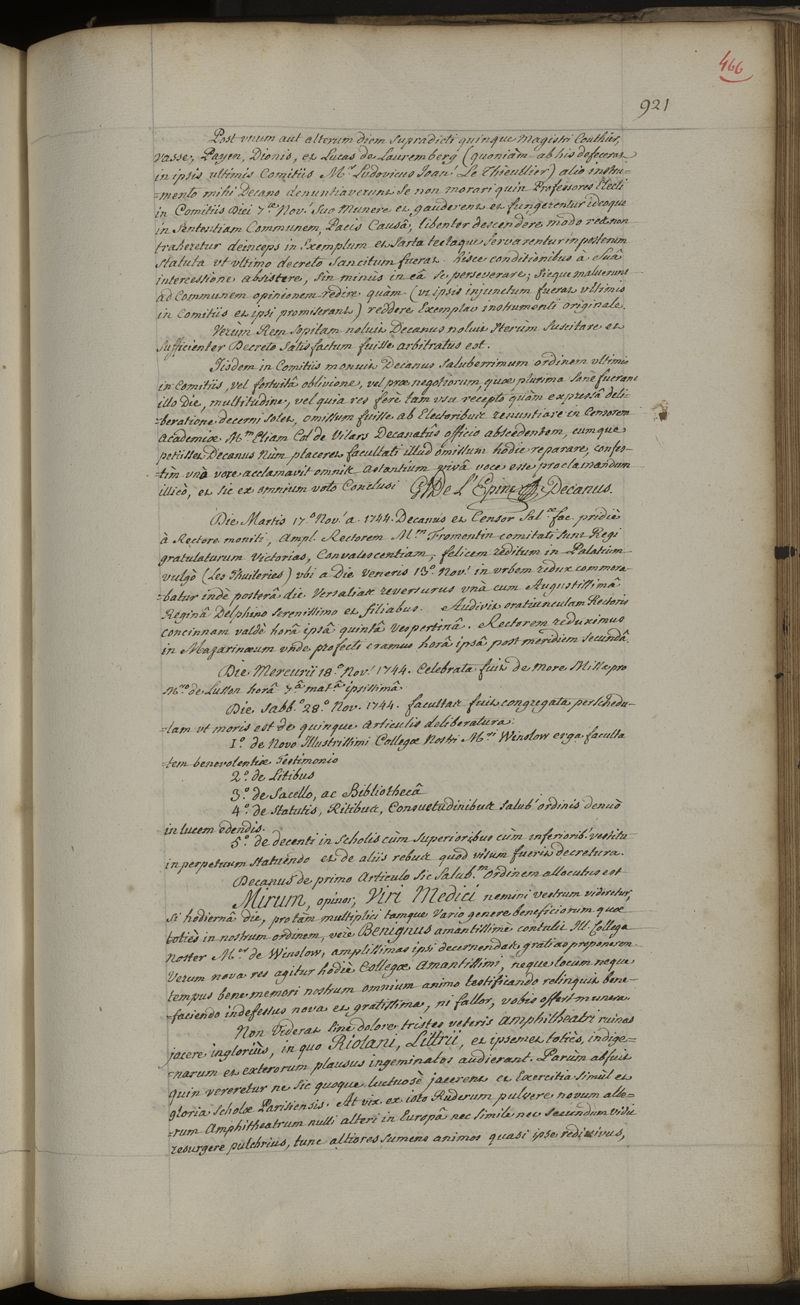 466
921
Post unum aut alterum diem supradicti quinque Magistri Couthier,
vasse, Payen, Dionis, et Lucas de Lauremberg (quoniam ab his defecerat
in ipsis ultimis Comitiis Mr Ludovicus Joan. Le Thieullier) alio instru=
=mento mihi Decano denuntiaverunt se non morari quin Professores Electi
in Comitiis Diei 7.ae Nov.i suo munere et gauderent et fungerentur ideoque
in sententiam Communem, Pacis Causâ, libenter descendere modo res non
traheretur deinceps in Exemplum et Sarta tectaque servarentur in posterum
Statuta ut ultimo decreto Sancitum fuerat. hisce conditionibus à suâ
intercessione absistere, sin minus in eâ se perseverare; sicque maluerunt
ad Communem opinionem redire quàm (ut ipsis injunctum fuerat ultimis
in Comitiis et ipsi promiserant) reddere Exemplar instrumenti originale.
Verùm Rem sopitam noluit Decanus noluit Iterum suscitare et
sufficienter Decreto satisfactum fuisse arbitratus est.
Iisdem in Comitiis monuit Decanus Saluberrimum ordinem ultimis
in Comitiis, vel fortuitâ oblivione, vel prae negotiorum, quae plurima sane fuerant
illo Die, multitudine, vel quia res fere tam usu recepto quàm expressâ deli=
=beratione decerni solet, omissum fuisse ab Electoribus renuntiare in Censorem
Academiae Mrm Eliam Col de Vilars Decanatûs officio abscedentem, cumque
petiisset Decanus Num placeret facultati illud omissum hodie reparare, confes=
=tim unâ voce acclamavit omnis astantium vivâ voce esse proclamandum
illicò, et sic ex omnium voto Conclusi GJ De L'Epine Decanus.
Die Martis 17.a Nov.i a. 1744. Decanus et Censor Sal.ae fac. pridiè
à Rectore moniti, Ampl. Rectorem Mrm Fromentin comitati sunt Regi
gratulaturum Victorias, Convalescentiam, felicem reditum in Palatium
vulgò (Les Thuileries) ubi a Die Veneris 13.a Nov.i in urbem redux commora=
=batur inde posterâ die Versalias reversurus unà cum Augustissimâ
Reginâ Delphino serenissimo et filiabus. Audivit oratiunculam Rectoris
concinnam valdè horâ ipsâ quintâ Vespertinâ. Rectorem reduximus
in Mazarinaeum unde profecti eramus horâ ipsâ post meridiem secundâ.
Die Mercurii 18.a Nov.i 1744. Celebrata fuit de more Missa pro
Mro de Lussen horâ 7.â mat.â ipsissimâ
Die Sabb.o 28.a Nov. 1744. facultas fuit congregata per schedu=
=lam ut moris est de quinque Articulis deliberatura.
1.o de Novo Illustrissimi Collegae Nostri Mri Winslow erga faculta
tem benevolentiae Testimonio
2.o de Litibus
3.o de Sacello, ac Bibliothecâ
4.o de Statutis, Ritibus, Consuetudinibus Salub. ordinis denuò
in lucem edendis.
5.o de decenti in Scholis cùm superioribus cùm inferiorib. vestitu
in perpetuum statuendo et de aliis rebus quod visum fuerit decretura.
Decanus de primo Articulo sic Salub.m Ordinem allocutus est
Mirum, opinor, Viri Medici nemini vestrum videretur,
si hodiernâ die, pro tam multiplici tamque vario genere beneficiorum quae
toties in nostrum ordinem, verè Benignus amantissimè contulit Ill. Collega
noster Mer de Winslow, amplissimas ipsi decernendas gratias proponerem.
Verum nova res agitur hodiè Collegae Amantissimi, neque locum neque
tempus bene memori nostrum omnium animo testificando relinquit bene=
=faciendo indefessus nova et gratissima, ni fallor, vobis offert munera
Non Viderat sine dolore tristes veteris Amphitheatri ruinas
jacere inglorius, in quo Riolani, Littrii, et ipsemet toties, indige=
=narum et exterorum plausus ingeminatos audierant. Parùm abfuit
quin vereretur ne sic quoque luctuosè jacerent et Exercitia simul et
gloria scholae Parisiensis. At vix ex isto Ruderum pulvere novum alte=
=rum Amphitheatrum nulli alteri in Europâ nec simile nec secundum vidit
resurgere pulchrius, tunc altiores sumens animos quasi ipse redivivus,